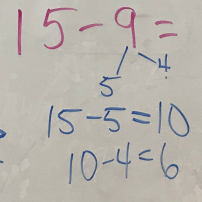 15-9=
5 4
15-5=10
10-4=6